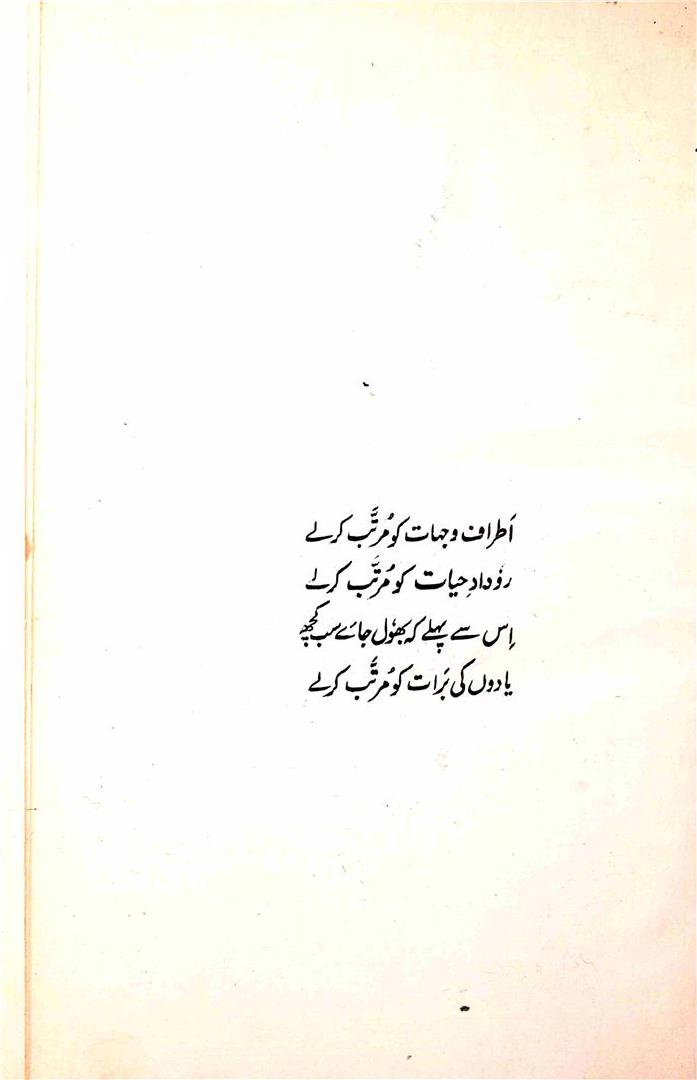 اَطراف و جہات کو مُرتَّب کرلے
روٗدادِ حیات کو مُرتَّب کرلے
اِس سے پہلے کہ بھوٗل جائے سب کچھ
یادوں کی بَرات کو مُرتَّب کرلے